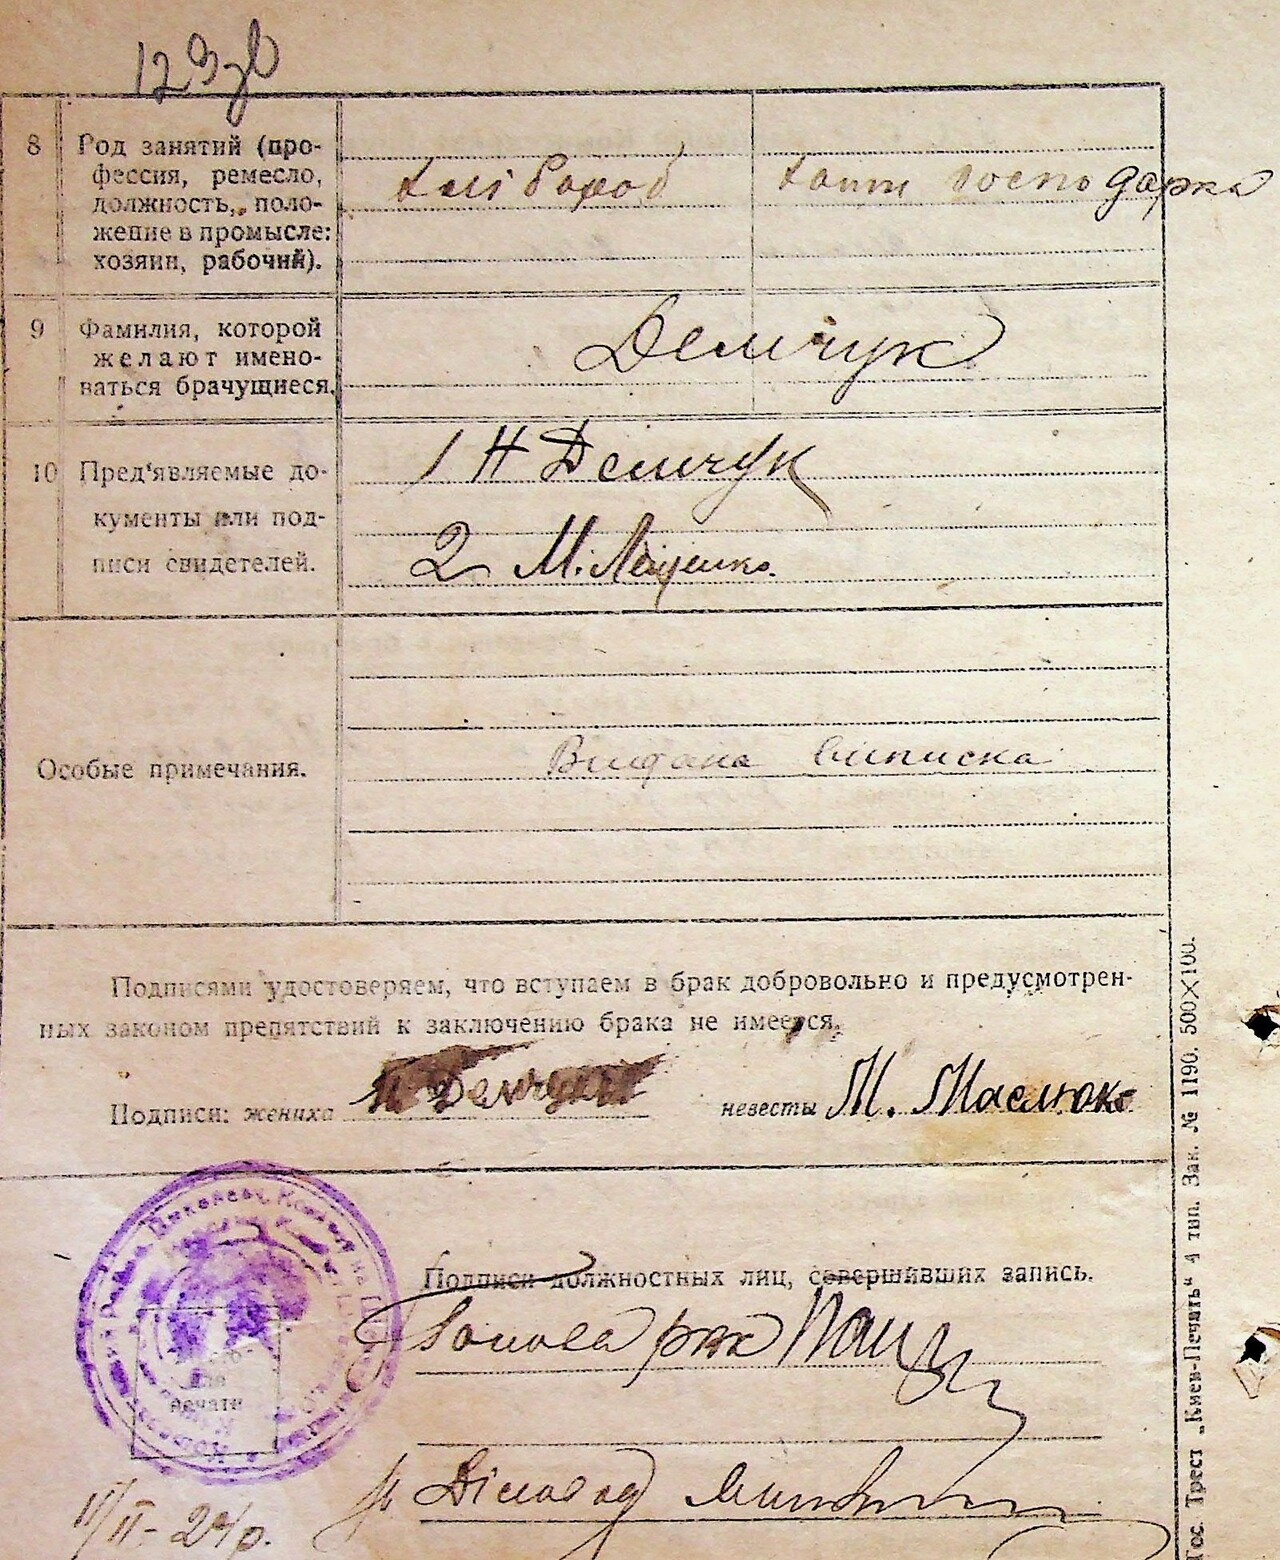 129
8
Род занятий (про-
фессия, ремесло,
должность, поло-
жение в промысле:
хозяин, рабочий).
хлібороб
господарка
9
Фамилия, которой
желают имено-
ваться брачущиеся.
Демчук
10
Пред'являемые до-
кументы или под-
писи свидетелей.
1 Н Демчук
2 М. Лещенко.
Особые примечания.
Видана виписка
Подписями удостоверяем, что вступаем в брак добровольно и предусмотрен-
ных законом препятствий к заключению брака не имеется.
Подписи: жениха Демчук невесты М. Маслюк
Подписи должностных лиц, совершивших запись.
Голова рвк
Место
для
печати
Діловод
11/II - 24 р.
Гос. Трест „Киев-Печать“ 4 тип. Зак. № 1190. 500×100.